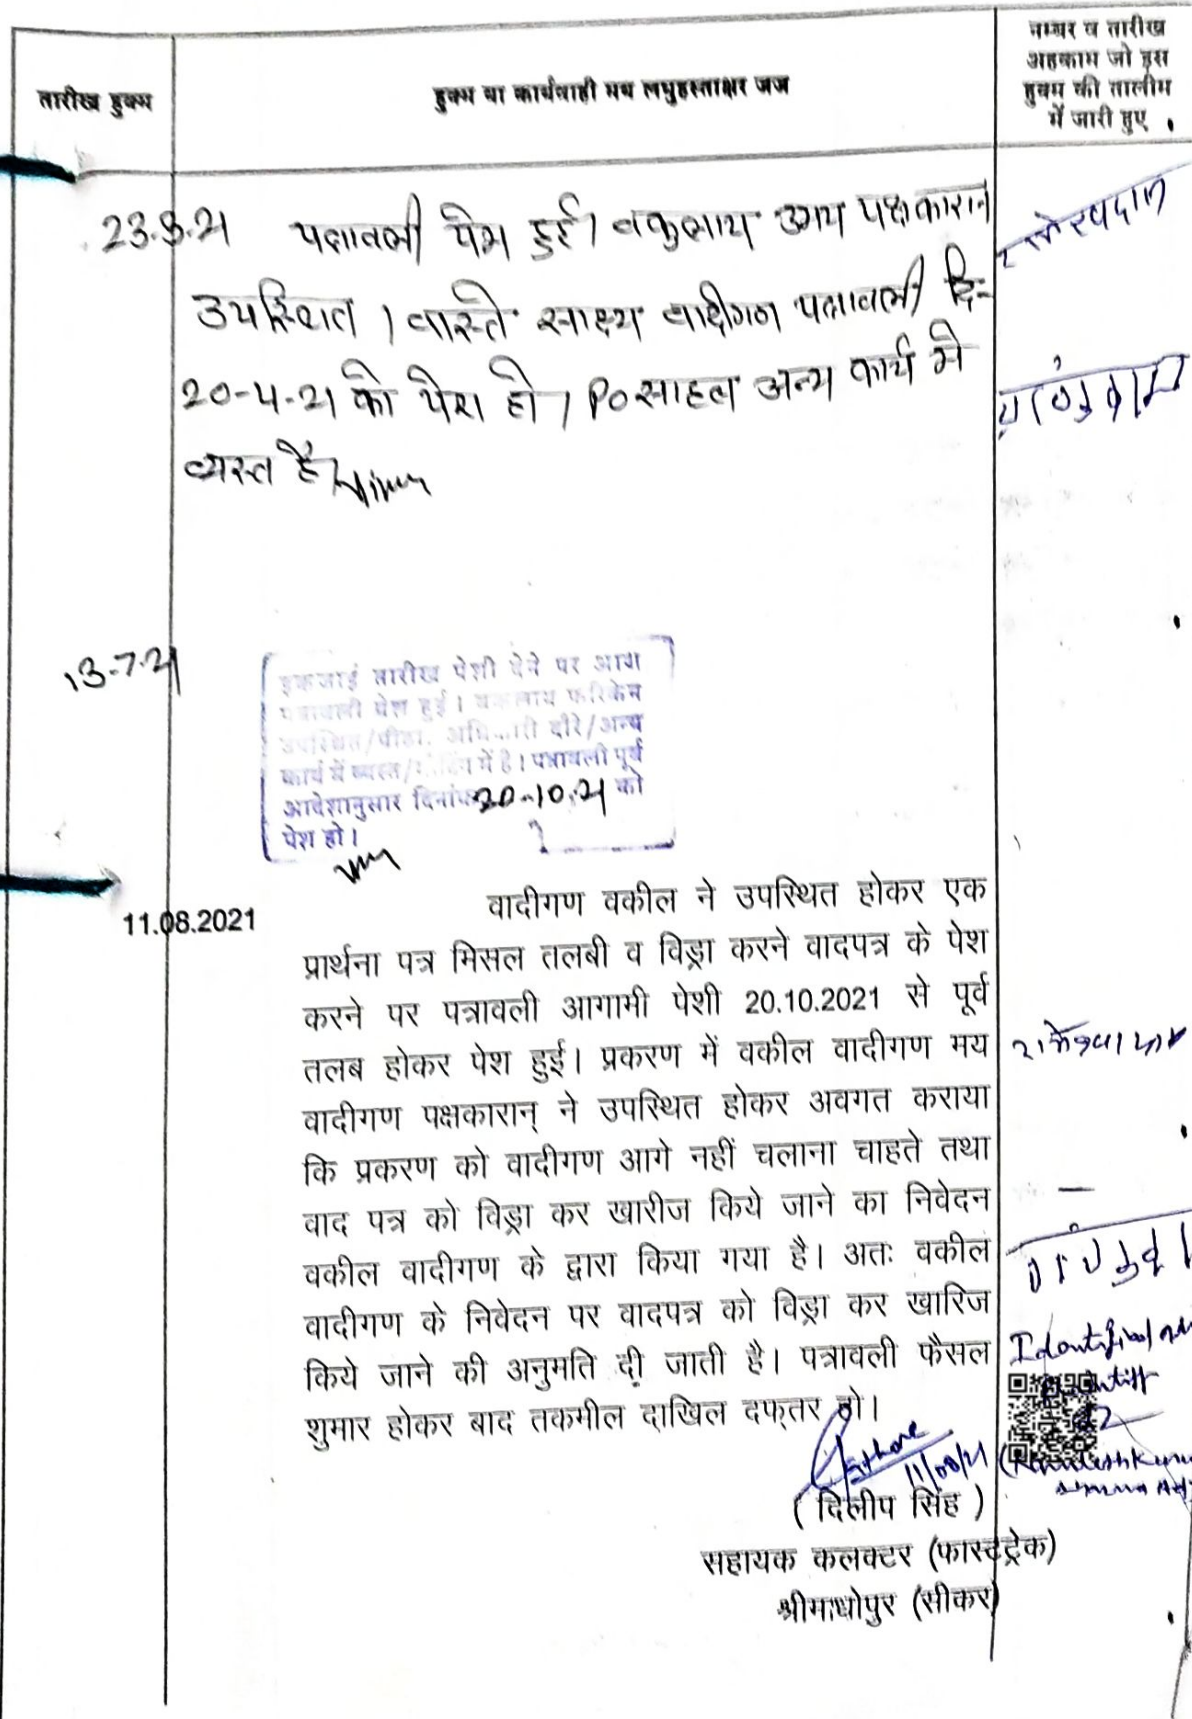 तारीख हुक्म
हुक्म या कार्यवाही मय लघुहस्ताक्षर जज
नम्बर व तारीख
अहकाम जो इस
हुक्म की तालीम
में जारी हुए
23.3.21 पत्रावली पेश हुई। वकुलाय उभय पक्षकारान
उपस्थित। वास्ते साक्ष्य वादीगण पत्रावली दि-
20-4-21 को पेश हो। PO साहब अन्य कार्य में
व्यस्त है।
13-7-21
इकजाई तारीख पेशी देने पर आज
पत्रावली पेश हुई। वकलाय फरिकेन
उपस्थित/पीठा. अधिकारी दौरे/अन्य
कार्य में व्यस्त/ में है। पत्रावली पूर्व
आदेशानुसार दिनांक 20-10-21 को
पेश हो।
11.08.2021
वादीगण वकील ने उपस्थित होकर एक
प्रार्थना पत्र मिसल तलबी व विड्रा करने वादपत्र के पेश
करने पर पत्रावली आगामी पेशी 20.10.2021 से पूर्व
तलब होकर पेश हुई। प्रकरण में वकील वादीगण मय
वादीगण पक्षकारान् ने उपस्थित होकर अवगत कराया
कि प्रकरण को वादीगण आगे नहीं चलाना चाहते तथा
वाद पत्र को विड्रा कर खारीज किये जाने का निवेदन
वकील वादीगण के द्वारा किया गया है। अतः वकील
वादीगण के निवेदन पर वादपत्र को विड्रा कर खारिज
किये जाने की अनुमति दी जाती है। पत्रावली फैसल
शुमार होकर बाद तकमील दाखिल दफ्तर हो।
11/08/21
( दिलीप सिंह )
सहायक कलक्टर (फास्टट्रेक)
श्रीमाधोपुर (सीकर)